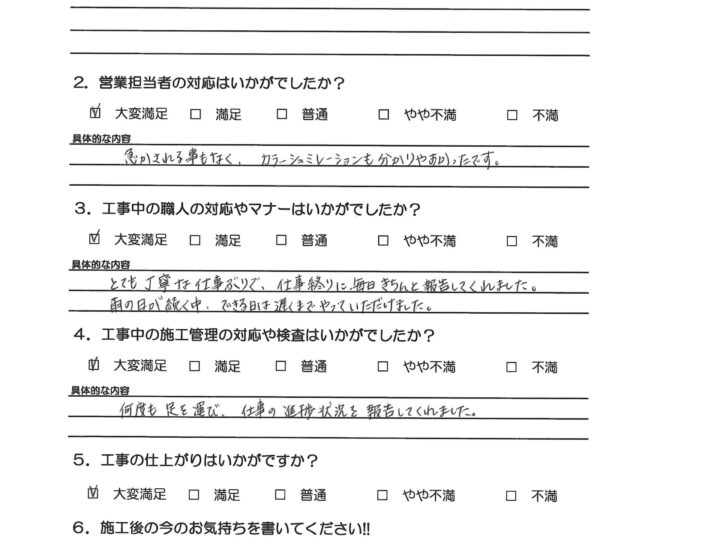 2. 営業担当者の対応はいかがでしたか?
☑ 大変満足 □ 満足 □ 普通 □ やや不満 □ 不満
具体的な内容
急かされる事もなく、カラーシュミレーションも分かりやすかったです。
3. 工事中の職人の対応やマナーはいかがでしたか?
☑ 大変満足 □ 満足 □ 普通 □ やや不満 □ 不満
具体的な内容
とても丁寧な仕事ぶりで、仕事終りに毎日きちんと報告してくれました。
雨の日が続く中、できる日は遅くまでやっていただけました。
4. 工事中の施工管理の対応や検査はいかがでしたか?
☑ 大変満足 □ 満足 □ 普通 □ やや不満 □ 不満
具体的な内容
何度も足を運び、仕事の進捗状況を報告してくれました。
5. 工事の仕上がりはいかがですか?
☑ 大変満足 □ 満足 □ 普通 □ やや不満 □ 不満
6. 施工後の今のお気持ちを書いてください!!